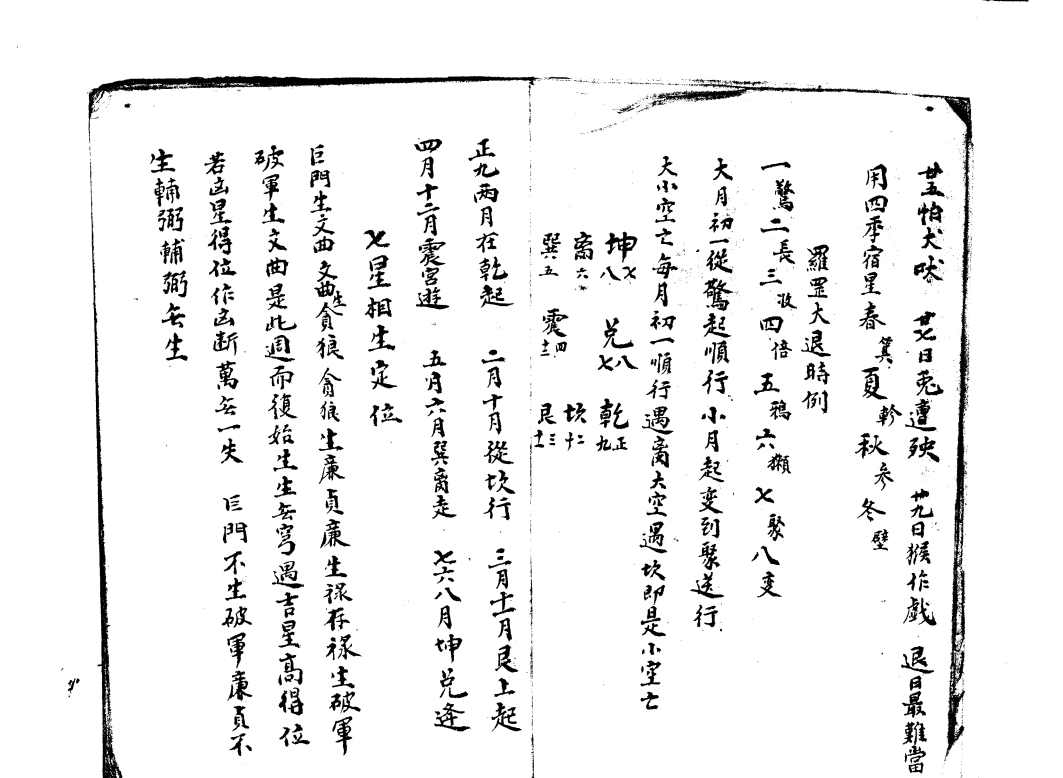 廿五怕犬吠　廿七日兎遭殃　廿九日猴作戲　退日最難當
用四季宿星春箕夏軫秋參冬壁
羅罡大退時例
一驚二長三收四倍五鴉六獺七聚八变
大月初一從驚起順行小月起变到聚送行
大小空亡每月初一順行遇离大空遇坎即是小空亡
坤七八　兑八七　乾正九
离六　震四十二　坎二十
巽五　艮三十一
正九两月在乾起　二月十月從坎行　三月十一月艮上起
四月十二月震宮遊　五月六月巽离走　七六八月坤兑逢
七星相生定位
巨門生文曲文曲生貪狼貪狼生廉貞廉生禄存禄生破軍
破軍生文曲是此週而復始生生無穹遇吉星高得位
若凶星得位作凶断萬無一失　巨門不生破軍廉貞不
生輔弼輔弼無生